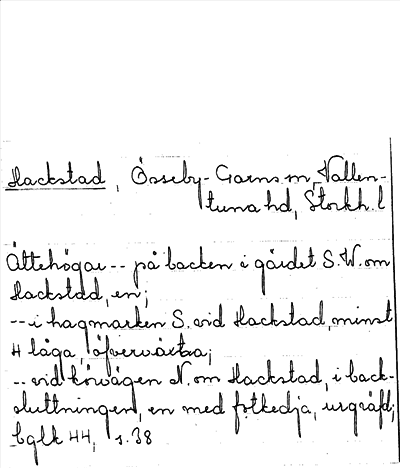 Hackstad, Össeby-Garns sn, Vallen-
tuna hd, Stockh. l
Ättehögar -- på backen i gärdet S.W. om
Hackstad, en;
-- i hagmarken S. vid Hackstad, minst
4 låga, öfverväxta;
-- vid körvägen N. om Hackstad, i back-
sluttningen, en med fotkedja, urgräfd;
44, s. 38